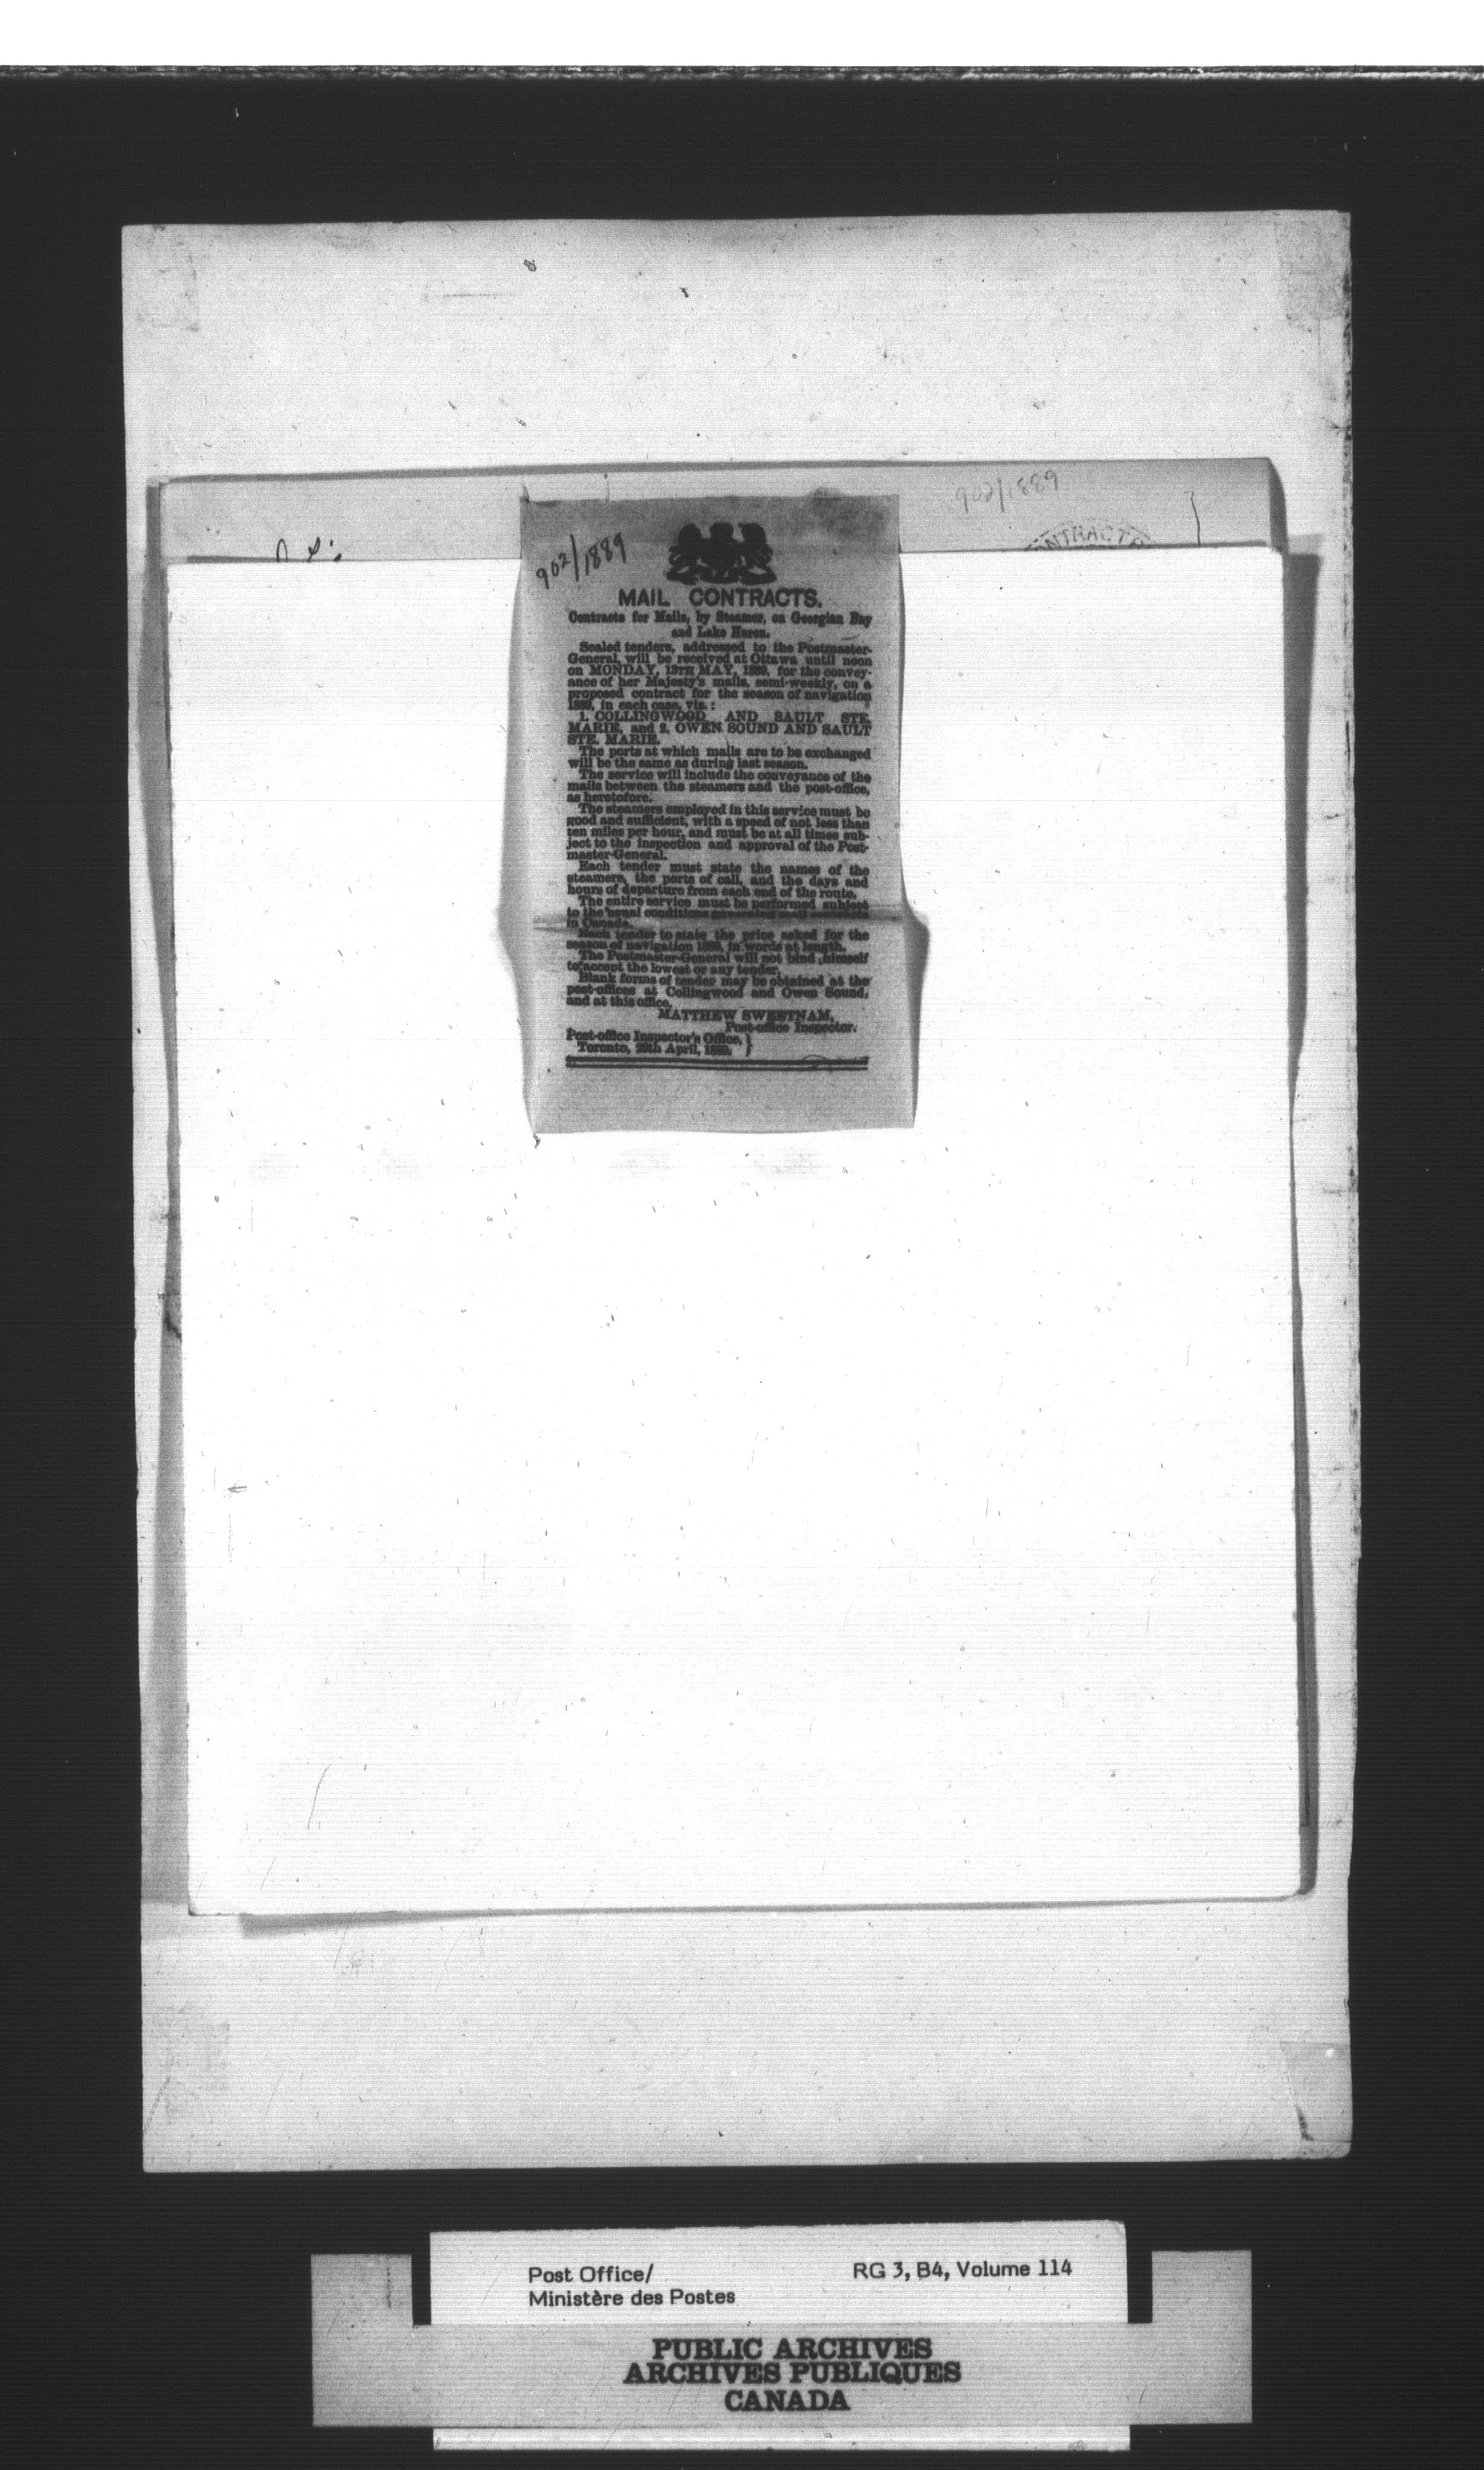 902/1889
902/1889
MAIL CONTRACTS.
Contracts for Mails, by Steamer, on Georgian Bay
and Lake Huron.
Sealed tenders, addressed to the Postmaster-
General, will be received at Ottawa until noon
on MONDAY, 13TH MAY, 1889, for the convey-
ance of her Majesty's mails, semi-weekly, on a
proposed contract for the season of navigation
1889, in each case, viz.:
1. COLLINGWOOD AND SAULT STE.
MARIE, and 2. OWEN SOUND AND SAULT
STE. MARIE.
The ports at which mails are to be exchanged
will be the same as during last season.
The service will include the conveyance of the
mails between the steamers and the post-office,
as heretofore.
The steamers employed in this service must be
good and sufficient, with a speed of not less than
ten miles per hour, and must be at all times sub-
ject to the inspection and approval of the Post-
master-General.
Each tender must state the names of the
steamers, the ports of call, and the days and
hours of departure from each end of the route.
The entire service must be performed subject
to the usual conditions governing mail contracts
in Canada.
Each tender to state the price asked for the
season of navigation 1889, in words at length.
The Postmaster-General will not bind himself
to accept the lowest or any tender.
Blank forms of tender may be obtained at the
post-offices at Collingwood and Owen Sound,
and at this office.
MATTHEW SWEETNAM,
Post-office Inspector.
Post-office Inspector's Office, }
Toronto, 29th April, 1889. }
Post Office/ RG 3, B4, Volume 114
Ministère des Postes
PUBLIC ARCHIVES
ARCHIVES PUBLIQUES
CANADA